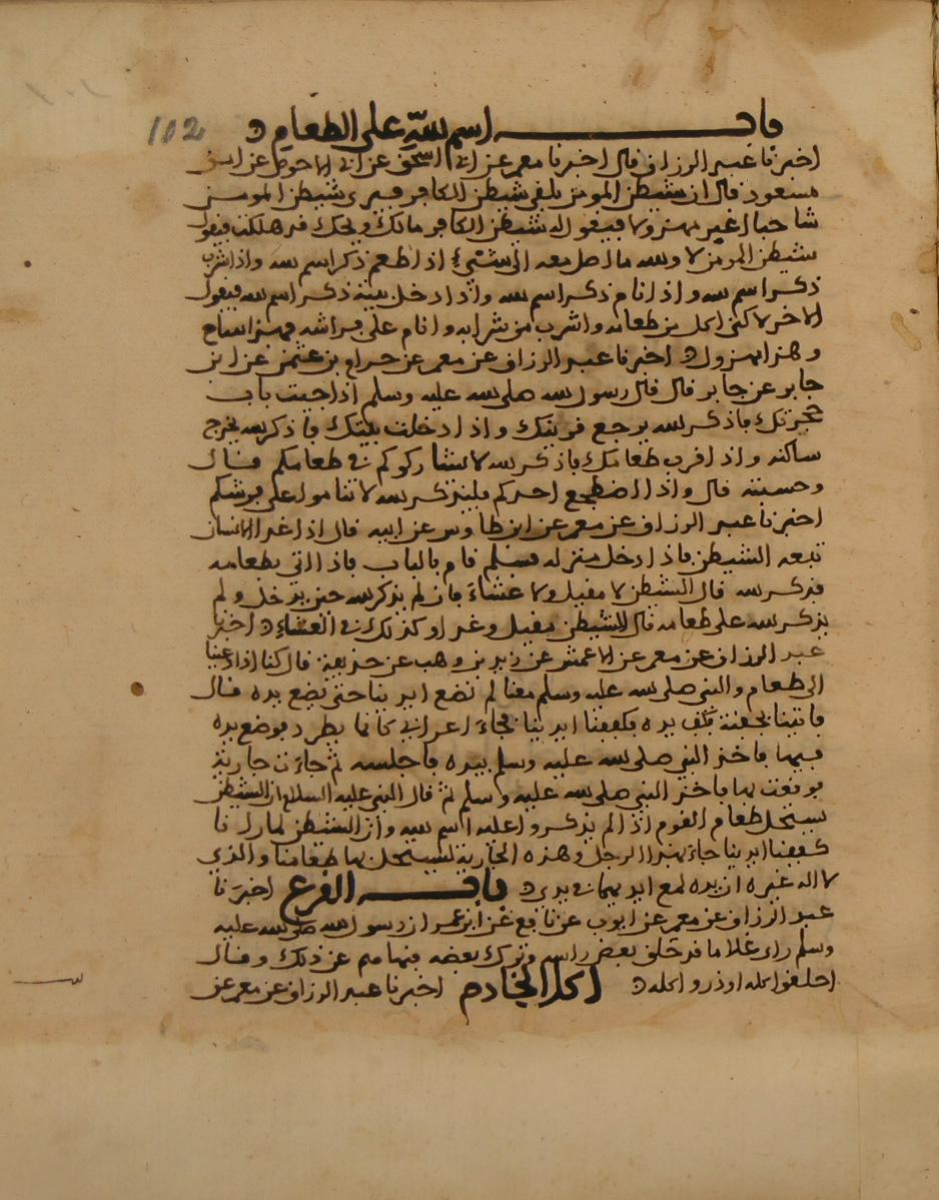 باب اسم الله على الطعام 102
اخبرنا عبد الرزاق قال اخبرنا معمر عن ابي اسحق عن ابي الاحوص عن ابن
مسعود قال ان شيطن المومن يلقى شيطن الكافر فيرى شيطن المومن
شاحبا اغبر مهزولا فيقول له شيطن الكافر مالك ويحك قد هلكت فيقول
شيطن المومن لا والله ما اصل معه الى شيء اذا طعم ذكر اسم الله واذا شرب
ذكر اسم الله واذا نام ذكر اسم الله واذا دخل بيته ذكر اسم الله فيقول
الاخر لاكني اكل من طعامه واشرب من شرابه وانام على فراشه فهذا ساح
وهذا مهزول اخبرنا عبد الرزاق عن معمر عن حرام بن عثمن عن ابن
جابر عن جابر قال قال رسول الله صلى الله عليه وسلم اذا جيت باب
حجرتك فاذكر الله يرجع قرينك واذا دخلت بيتك فاذكر الله يخرج
ساكنه واذا قرب طعامك فاذكر الله لا يشاركوكم في طعامكم قال
وحسبته قال واذا اضطجع احدكم فليذكر الله لا يناموا على فرشكم
اخبرنا عبد الرزاق عن معمر عن ابن طاوس عن ابيه قال اذا غدا الانسان
تبعه الشيطن فاذا دخل منزله فسلم قام بالباب فاذا اتي بطعامه
فذكر الله قال الشيطن لا مقيل ولا عشاء فان لم يذكر الله حين يدخل ولم
يذكر الله على طعامه قال الشيطن مقيل وغدا وكذلك في العشاء اخبرنا
عبد الرزاق عن معمر عن الاعمش عن زيد بن وهب عن حذيفة قال كنا اذا دعينا
الى طعام والنبي صلى الله عليه وسلم معنا لم نضع ايدينا حتى يضع يده قال
فاتينا بجفنة فكف يده فكففنا ايدينا فجاء اعرابي كانما يطرد فوضع يده
فيها فاخذ النبي صلى الله عليه وسلم بيده فاجلسه ثم جاءت جارية
فوقعت بها فاخذ النبي صلى الله عليه وسلم ثم قال النبي عليه السلام ان الشيطن
يستحل طعام القوم اذا لم يذكروا عليه اسم الله وان الشيطن لما رانا
كففنا ايدينا جاء بهذا الرجل وهذه الجارية ليستحل بها طعامنا والذي
لا اله غيره ان يده لمع ايديهما في يدي باب القزع اخبرنا
عبد الرزاق عن معمر عن ايوب عن نافع عن ابن عمر ان رسول الله صلى الله عليه
وسلم راى غلاما قد حلق بعض راسه وترك بعضه فنهاهم عن ذلك وقال
احلقوا كله او ذروا كله اكل الخادم اخبرنا عبد الرزاق عن معمر عن